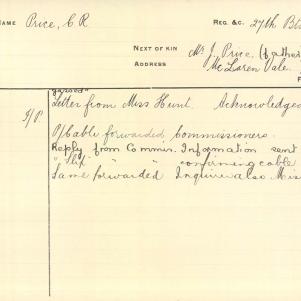 NAME Price, C R REG. &C. 27th B
NEXT OF KIN Mr J. Price (father
ADDRESS McLaren Vale
Letter from Miss Hunt. Acknowledged
O/Cable forwarded Commissioners.
Reply from Commis. Information sent
" " confirming cable
Same forwarded Inquirer also Mis